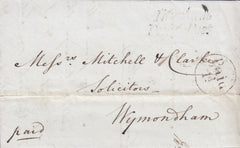 Messrs Mitchell & Clarke
Solicitors
Wymondham
paid
Paid